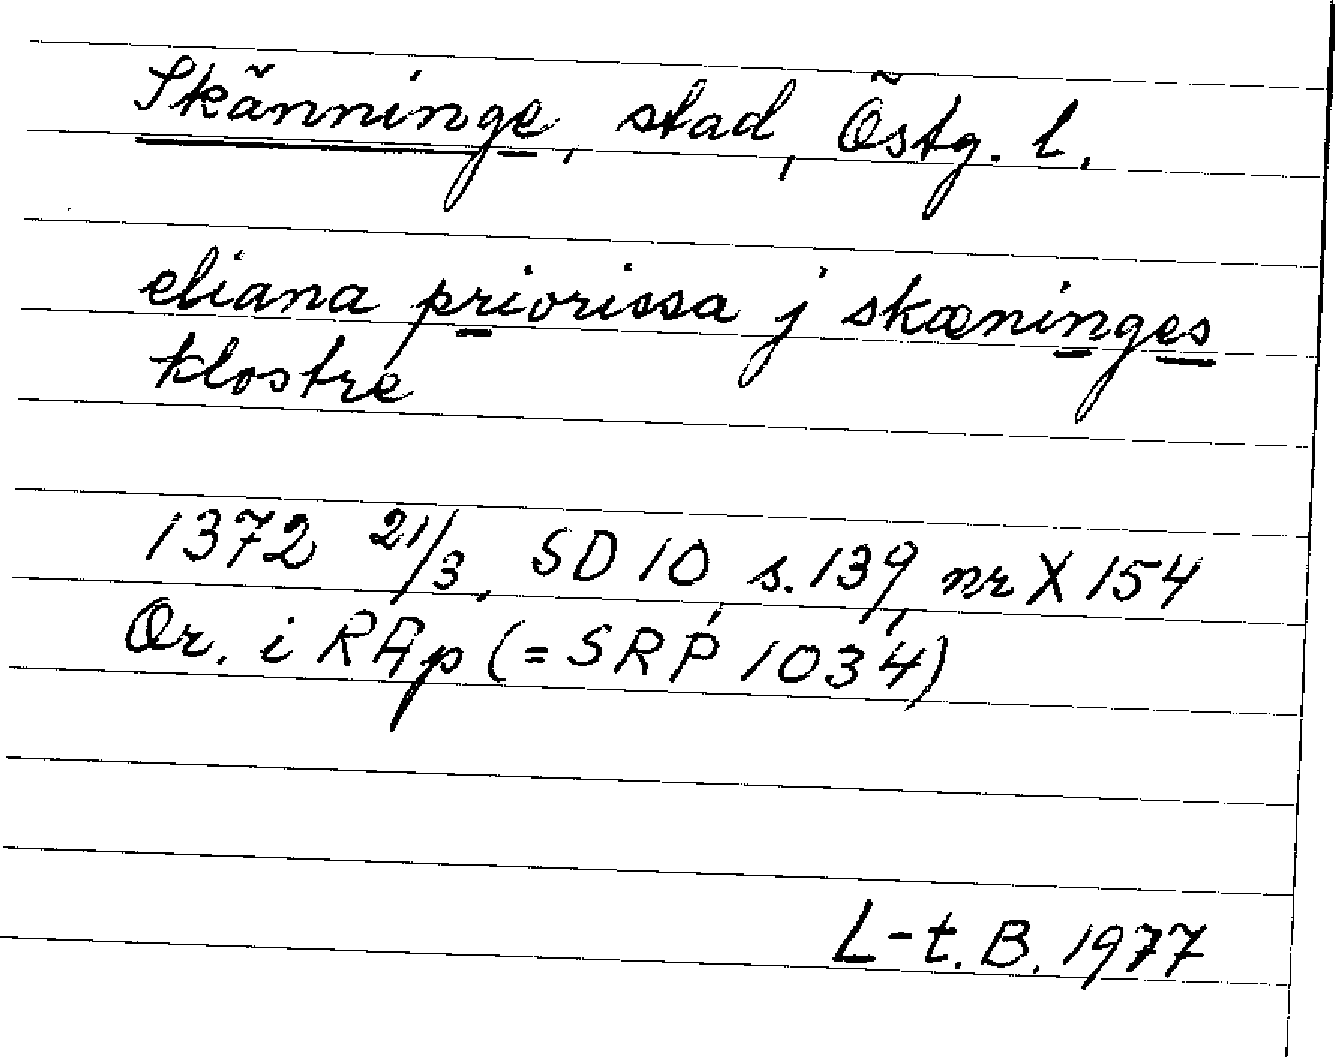 Skänninge, stad, Östg. l.
eliana priorissa j skæninges
klostre
1372 21/3, SD 10, s. 139, nr X 154
Or. i RAp (= SRP 1034)
L-t. B. 1977